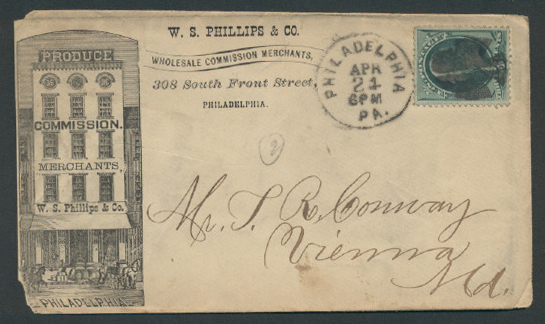 W. S. PHILLIPS & CO.
WHOLESALE COMMISSION MERCHANTS,
308 South Front Street,
PHILADELPHIA.
PHILADELPHIA
APR
24
6PM
PA.
PRODUCE
COMMISSION.
MERCHANTS,
W. S. Phillips & Co.
PHILADELPHIA
2
Mr. T. R. Conway
Vienna
Md.